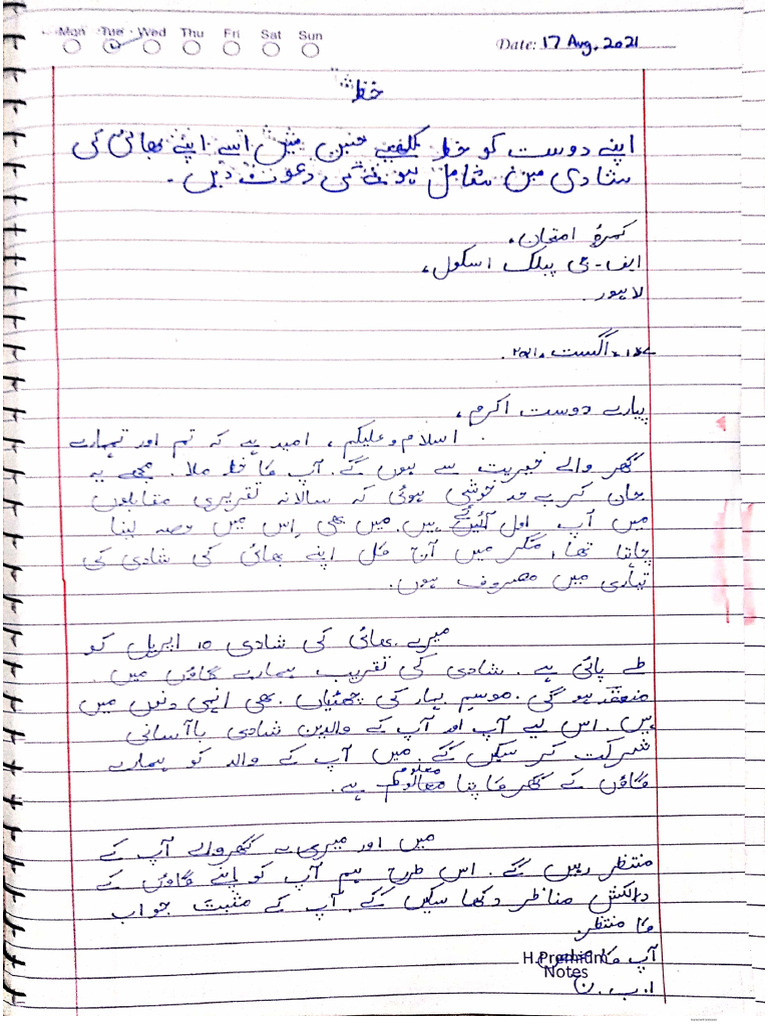 Mon Tue Wed Thu Fri Sat Sun
Date: 17 Aug, 2021
خط
اپنے دوست کو خط لکھیے جس میں اسے اپنے بھائی کی
شادی میں شامل ہونے کی دعوت دیں۔
کمرۂ امتحان،
ایف-جی پبلک اسکول،
لاہور۔
۱۷،اگست ۲۰۲۱۔
پیارے دوست اکرم،
اسلام وعلیکم، امید ہے کہ تم اور تمہارے
گھر والے خیریت سے ہوں گے۔ آپ کا خط ملا۔ مجھے یہ
جان کر بے حد خوشی ہوئی کہ سالانہ تقریری مقابلوں
میں آپ اول آئے ہیں۔ میں بھی اِس میں حصہ لینا
چاہتا تھا، مگر میں آج کل اپنے بھائی کی شادی کی
تیاری میں مصروف ہوں۔
میرے بھائی کی شادی ۱۵ اپریل کو
طے پائی ہے۔ شادی کی تقریب ہمارے گاؤں میں
منعقد ہو گی۔ موسم بہار کی چھٹیاں بھی انہی دنوں میں
ہیں۔ اس لیے آپ اور آپ کے والدین شادی باآسانی
شرکت کر سکیں گے۔ میں آپ کے والد کو ہمارے
گاؤں کے گھر کا پتا معلوم ہے۔
میں اور میرے گھر والے آپ کے
منتظر رہیں گے۔ اس طرح ہم آپ کو اپنے گاؤں کے
دلکش مناظر دکھا سکیں گے۔ آپ کے مثبت جواب
کا منتظر۔
آپ کا
H.Premium
Notes
ا۔ب۔ن